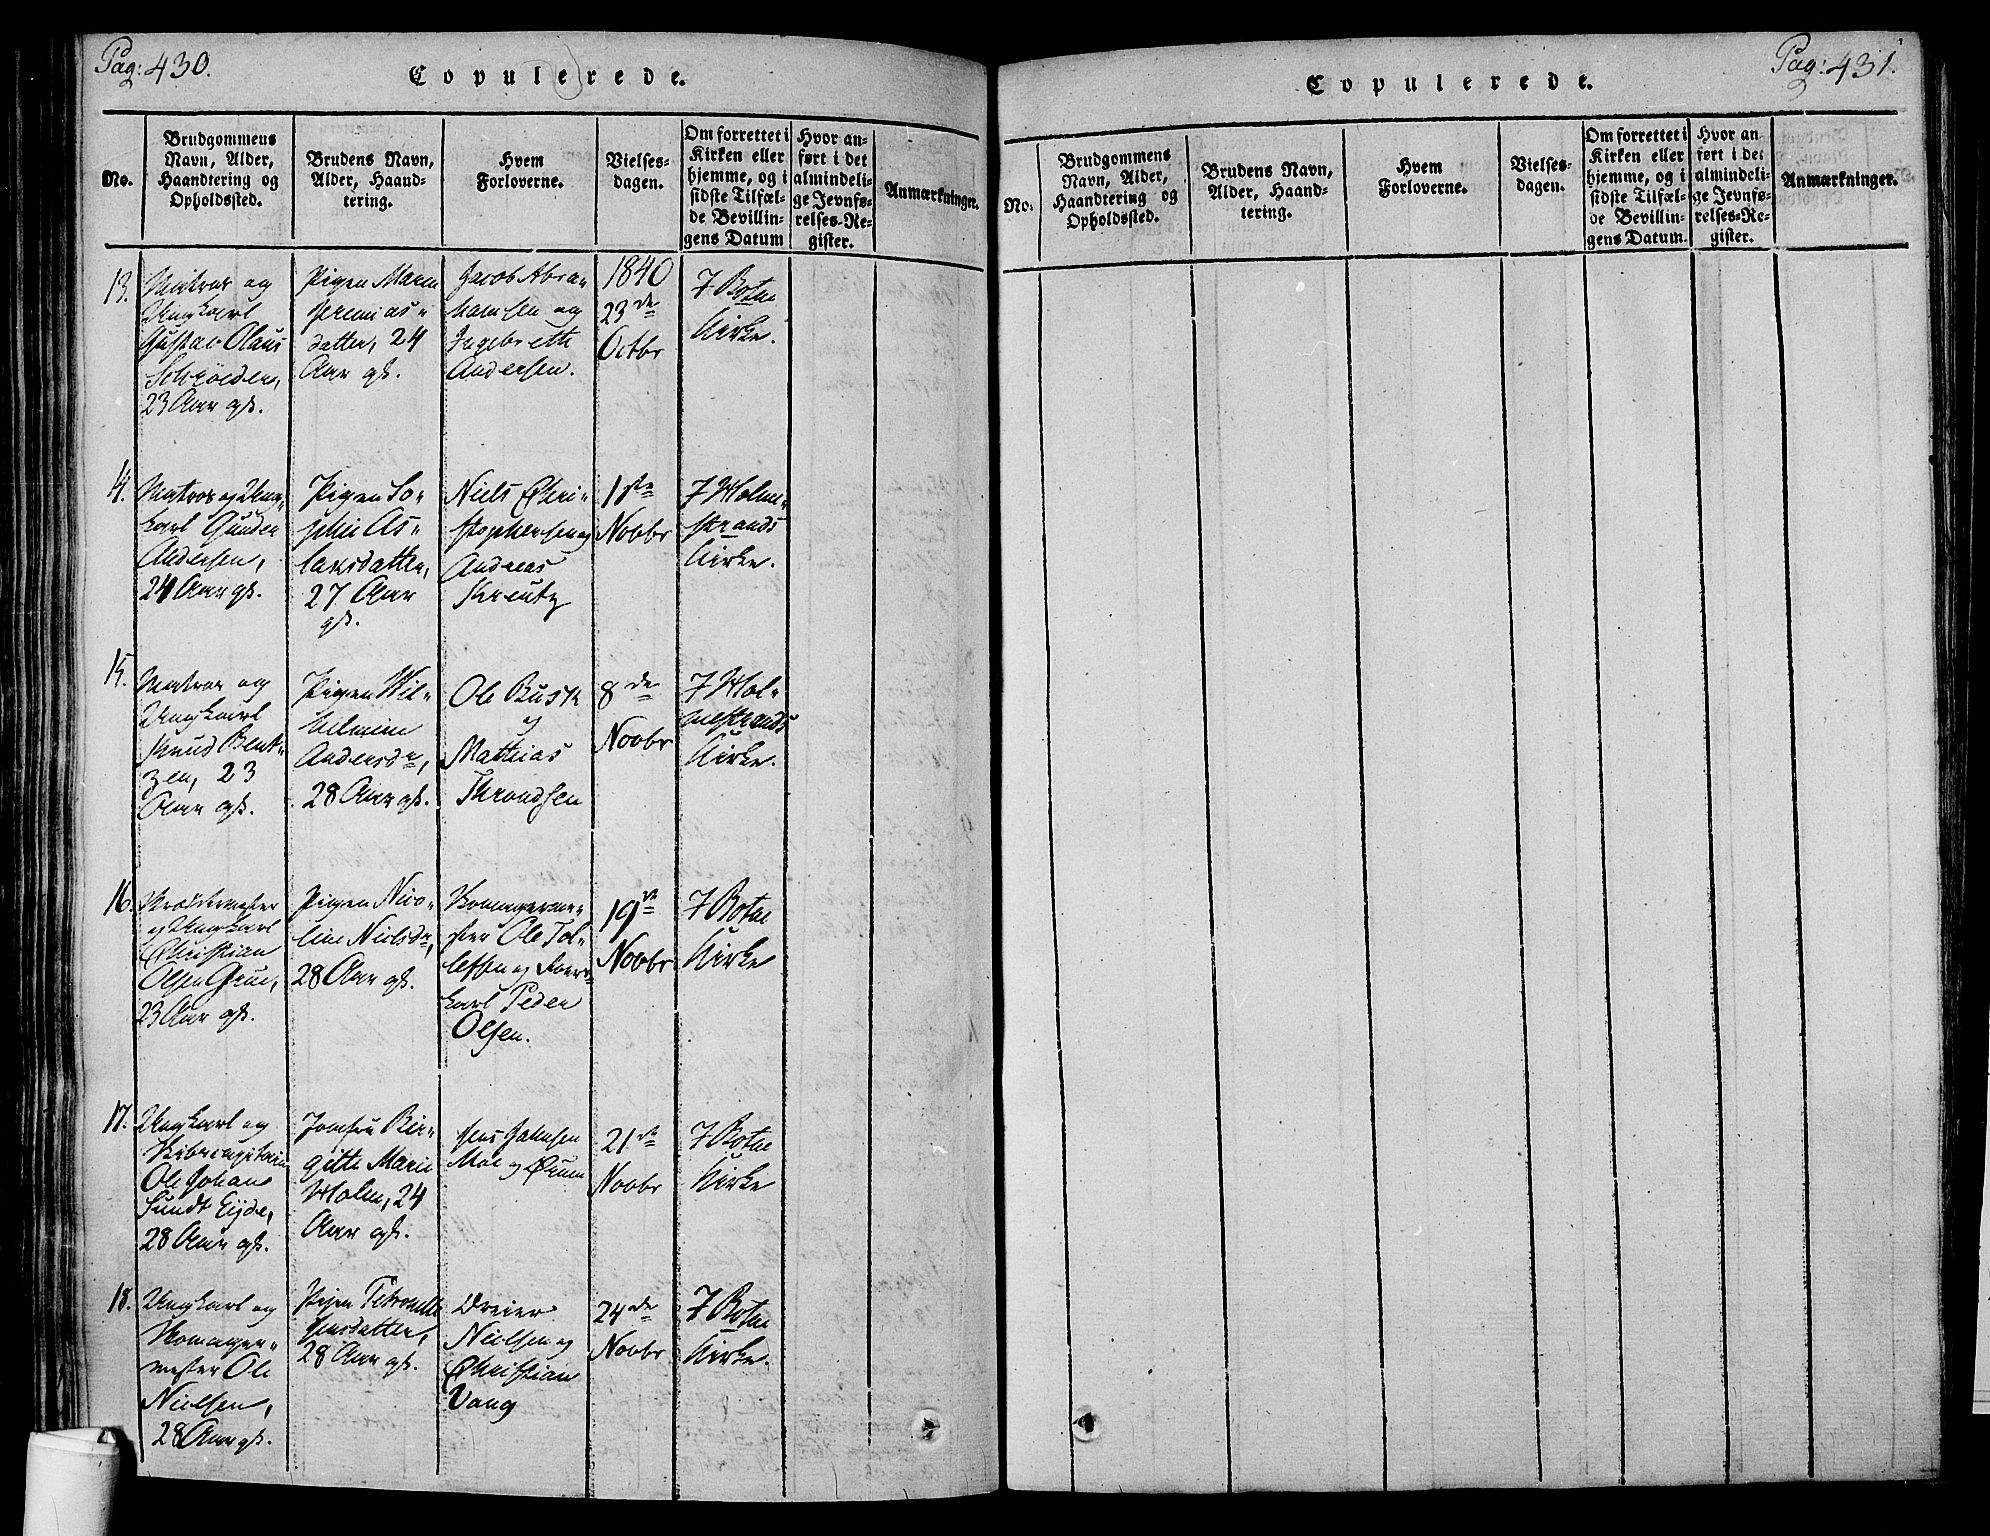 Pag: 430.
Copulerede.
No.
Brudgommens
Navn, Alder,
Haandtering og
Opholdssted.
Brudens Navn,
Alder, Haand-
tering.
Hvem
Forloverne.
Vielses-
dagen.
Om forrettet i
Kirken eller
hjemme, og i
sidste Tilfæl-
de Bevillin-
gens Datum
Hvor an-
ført i det
almindeli-
ge Jevnfø-
relses-Re-
gister.
Anmærkninger.
13.
Matros og
Ungkarl
Gustav Olaus
Schrøder,
23 Aar gl.
Pigen Maren
Jeremias-
datter, 24
Aar gl.
Jacob Abra-
hamsen og
Ingebrett
Andersen.
1840
23de
Octbr
I Botne
Kirke.
14.
Matros og Ung-
karl Gunder
Andersen,
24 Aar gl.
Pigen So-
phie As-
laksdatter,
27 Aar
gl.
Niels Chri-
stophersen og
Andreas
Kreutz
1ste
Novbr
I Holme-
strands
Kirke.
15.
Matros og
Ungkarl
Knud Bent-
zen, 23
Aar gl.
Pigen Wil-
helmine
Andersdr,
28 Aar gl.
Ole Busk
og
Mathias
Throndsen
8de
Novbr
I Hol-
mestrands
Kirke.
16.
og Ungkarl
Christian
Olsen Grue,
23 Aar gl.
Pigen Nico-
line Nielsdr,
28 Aar gl.
Komagerme-
ster Ole Tol-
lefsen og
karl Peder
Olsen.
19de
Novbr
I Botne
Kirke
17.
Ungkarl og
Skibscapitain
Ole Johan
Sundt Eyde,
28 Aar gl.
Jomfru Bir-
gitte Marie
Holm, 24
Aar gl.
Jens Jahnsen
Moe og Ørum
21de
Novbr
I Botne
Kirke
18.
Ungkarl og
Komager-
mester Ole
Nielsen,
28 Aar gl.
Pigen Petronelle
Jensdatter,
28 Aar gl.
Dreier
Nielsen og
Christian
Vang
24de
Novbr
I Botne
Kirke.
Pag: 431.
Copulerede.
No.
Brudgommens
Navn, Alder,
Haandtering og
Opholdssted.
Brudens Navn,
Alder, Haand-
tering.
Hvem
Forloverne.
Vielses-
dagen.
Om forrettet i
Kirken eller
hjemme, og i
sidste Tilfæl-
de Bevillin-
gens Datum
Hvor an
ført i det
almindeli-
ge Jevnfø-
relses-Re-
gister.
Anmærkninger.